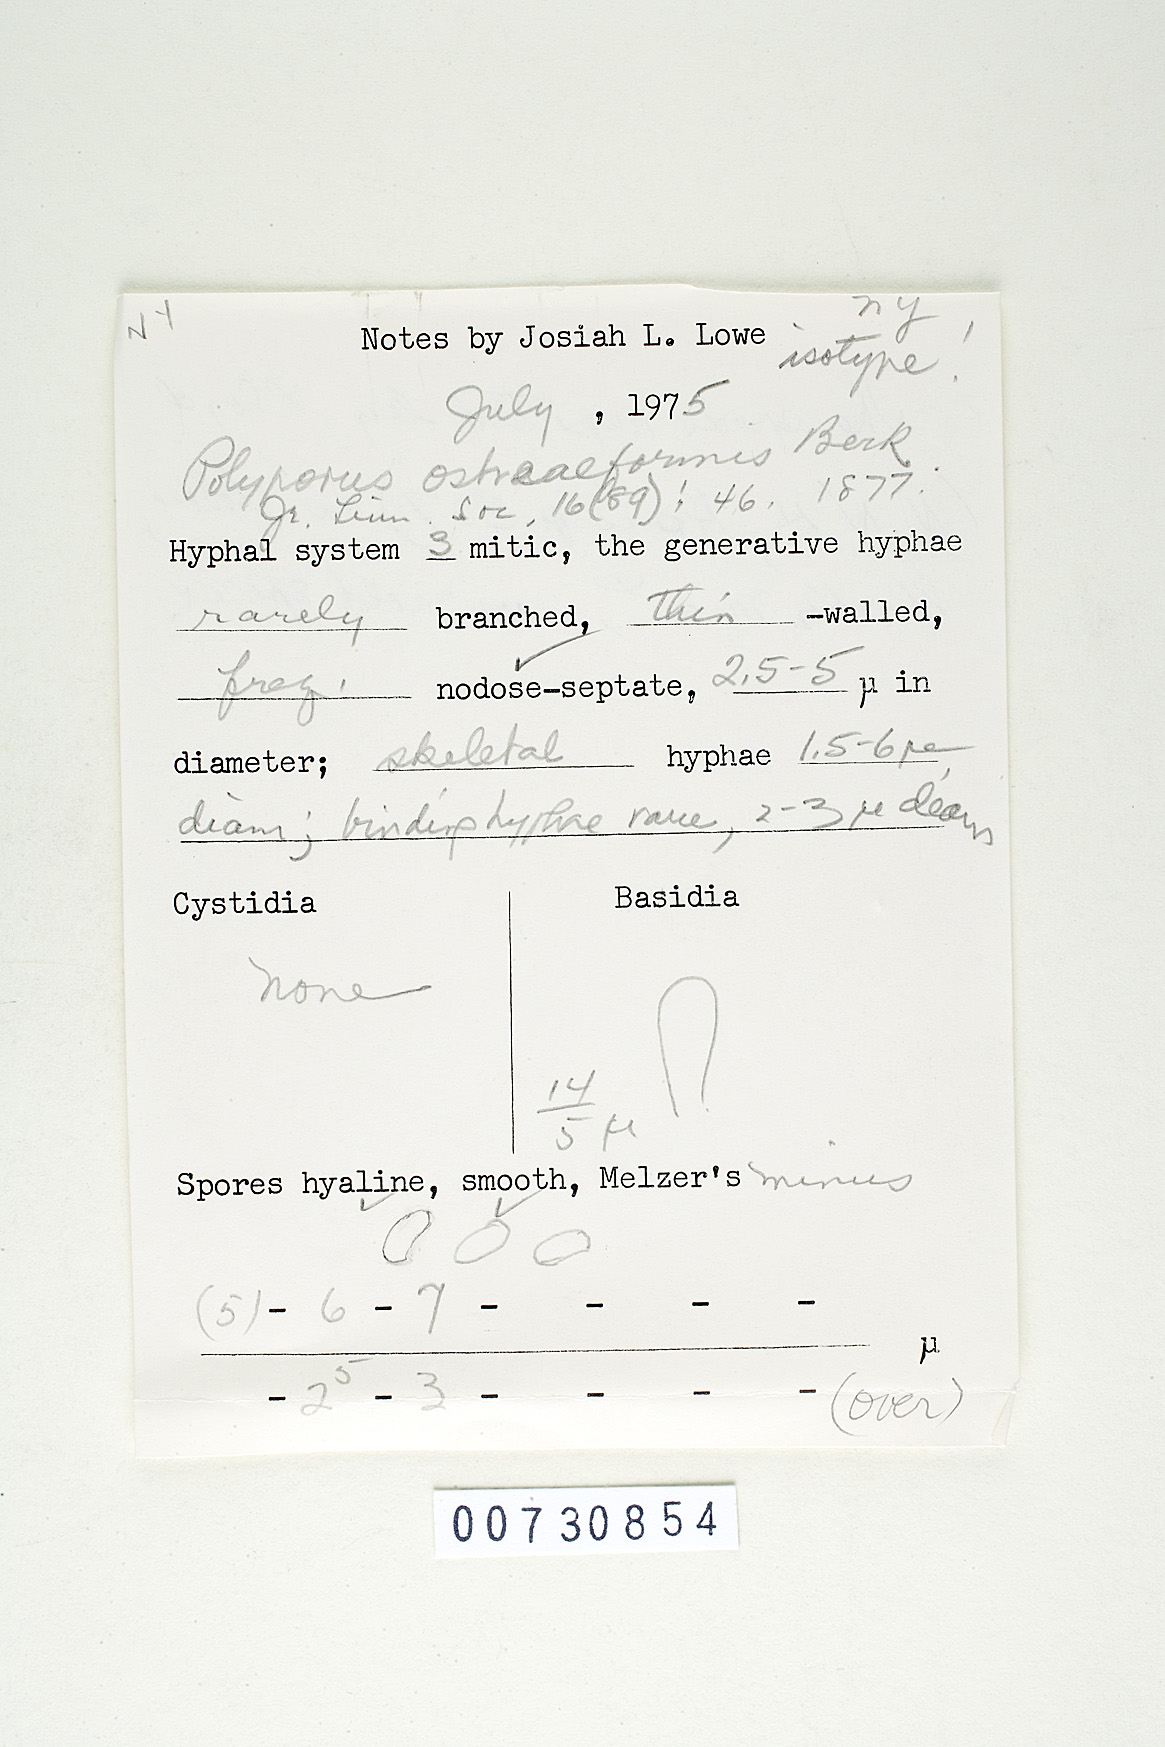 NY
Notes by Josiah L. Lowe
NY
isotype!
July, 1975
Polyporus ostreaeformis Berk.
Jr. Linn. Soc. 16(89): 46. 1877.
Hyphal system 3 mitic, the generative hyphae
rarely branched, thin -walled,
freq. nodose-septate, 2.5-5 µ in
diameter; skeletal hyphae 1.5-6 µ
diam; binding hyphae rare, 2-3 µ diam
Cystidia
Basidia
none
14
5 µ
Spores hyaline, smooth, Melzer's minus
(5)- 6 - 7 - - - -
µ
- 2 5 - 3 - - - - (over)
00730854